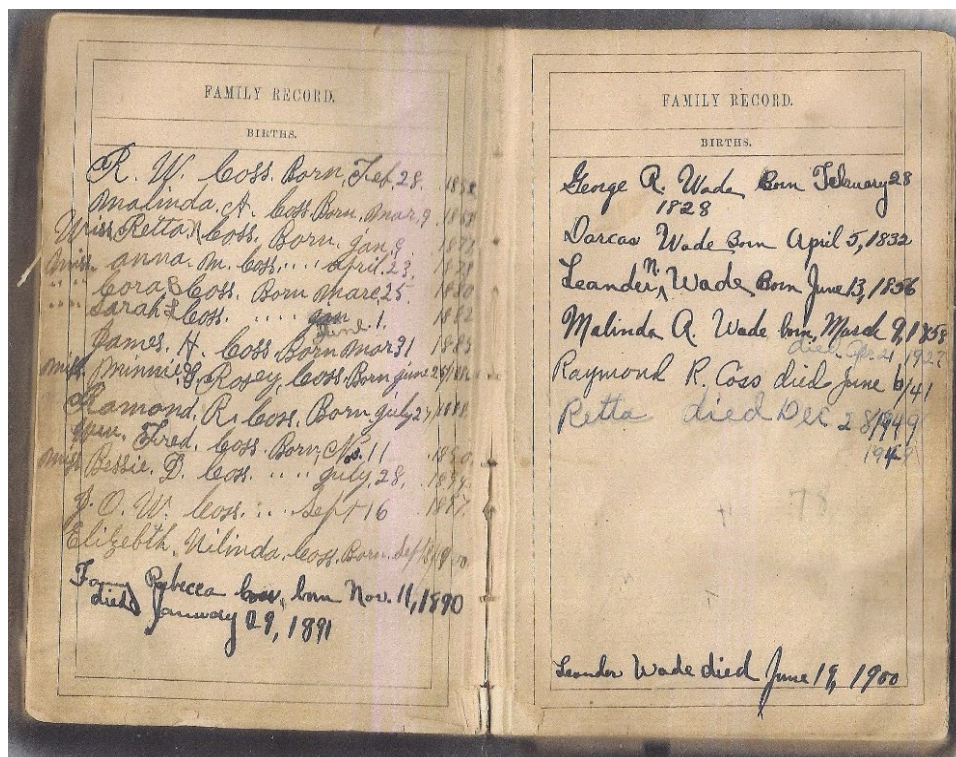 FAMILY RECORD.
BIRTHS.
R. W. Coss. Born, Feb 28.
Malinda, A. Coss. Born, Mar, 9
Miss Retta, Coss, Born. Jan, 9
Miss. anna. M. Coss. .... april. 23.
.... Cora B Coss. Born Mar. 25. 1880
.... Sarah L Coss. .... 1. 1882
James. H. Coss Born Mar 31
Miss. Minnie, Rosey, Coss. Born June
Ramond, R. Coss. Born July
Fred. Coss. Born, Nov. 11 1890
Miss Bessie. D. Coss. .... July, 28,
J. O. W. Coss. .... Sept 16 1897
Elizebth. Vilinda. Coss. Born
Rybecca born Nov. 11, 1890
died January 29, 1891
FAMILY RECORD.
BIRTHS.
George R. Wade Born February 28
1828
Darcas Wade Born April 5, 1832
Leander N. Wade Born June 13, 1856
Malinda A. Wade born March 9, 1858
died Apr 21
Raymond R. Coss died June 6/41
Retta died Dec 28/1949
78
Leander Wade died June 19, 1900